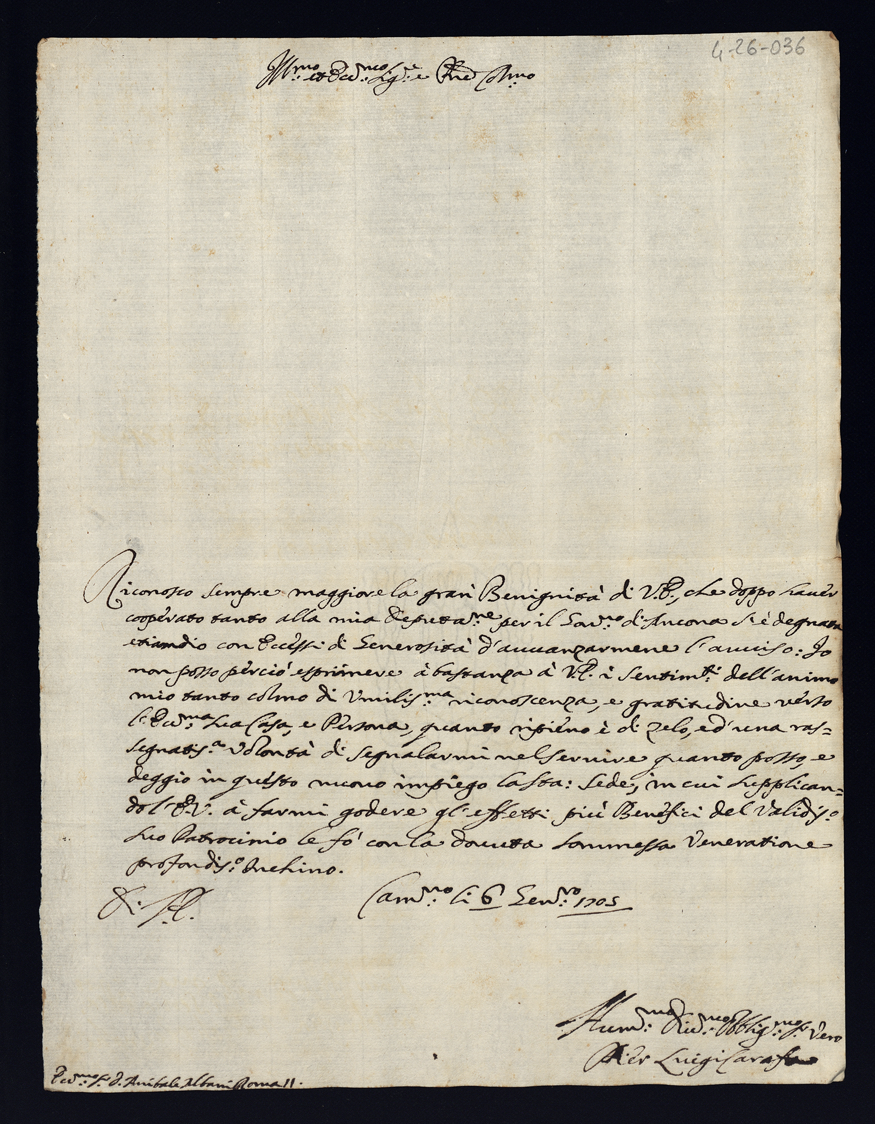 4-26-036
Ill:mo et Ecc:mo Sig:re e Pne Col:mo
Riconosco sempre maggiore la gran Benignità di V.E., che doppo haver
cooperato tanto alla mia Deputa:ne per il Gov:no di Ancona si è degnata
etiamdio con Eccessi di Generosità d'avvanzarmene l'avviso: Io
non posso perciò esprimere à bastanza à V.E. i Sentim:ti dell'animo
mio tanto colmo di Umilis:ma riconoscenza, e gratitudine verso
l'Ecc:ma sua Casa, e Persona, quanto ripieno è di zelo, e d'una ras=
segnatis:a Volontà di segnalarmi nel servire quanto posso, e
deggio in questo nuovo impiego la Sta: Sede, in cui supplican=
do l'E.V. à farmi godere gl'effetti più Benefici del Validis:o
suo Patrocinio le fò con la dovuta sommessa Veneratione
profondis:o Inchino.
Di V.E. Cam:no li 6 Gen:ro 1705
Hum:mo Div:mo Obblig:mo S: Vero
Pier Luigi Carafa
Ecc:mo S: D. Anibale Albani Roma 11.